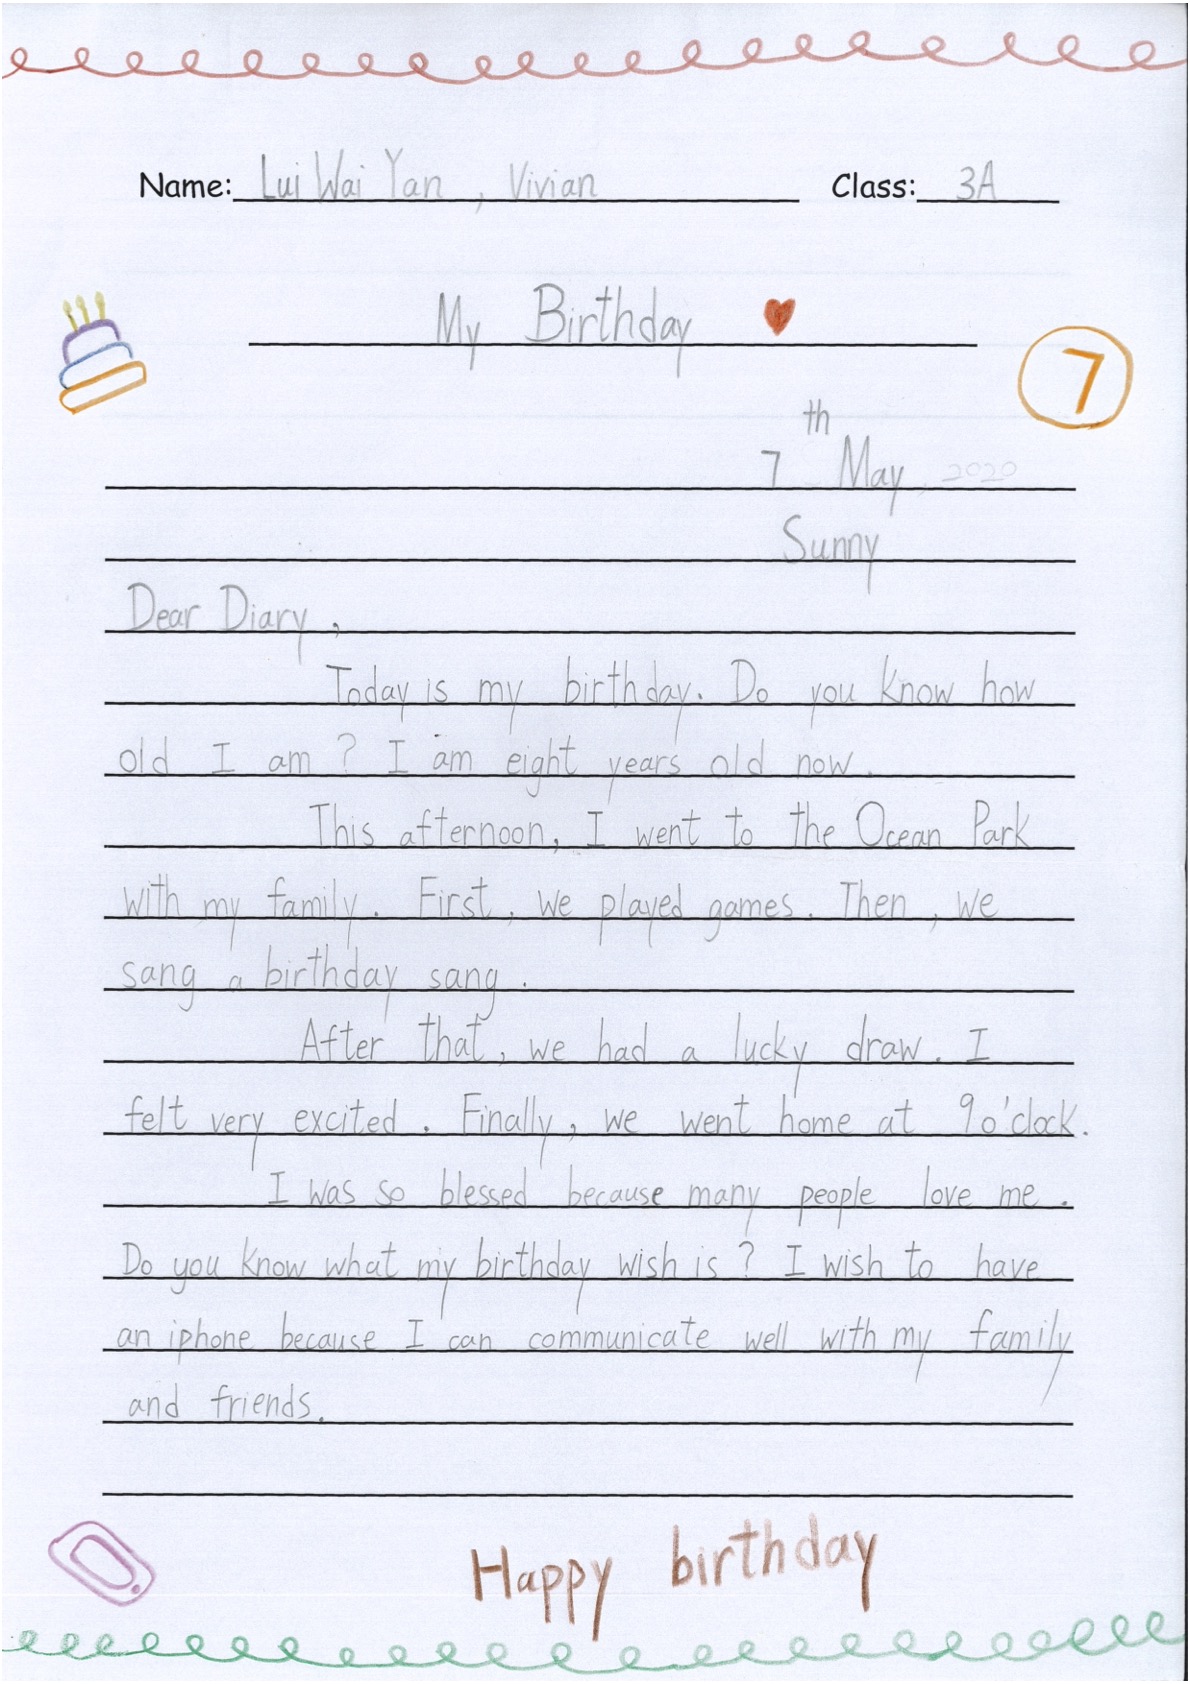 Name: Lui Wai Yan , Vivian Class: 3A
My Birthday
7
7th May, 2020
Sunny
Dear Diary ,
Today is my birthday. Do you know how
old I am ? I am eight years old now .
This afternoon, I went to the Ocean Park
with my family . First , we played games . Then , we
sang a birthday sang .
After that , we had a lucky draw . I
felt very excited . Finally , we went home at 9 o'clock.
I was so blessed because many people love me .
Do you know what my birthday wish is ? I wish to have
an iphone because I can communicate well with my family
and friends.
Happy birthday